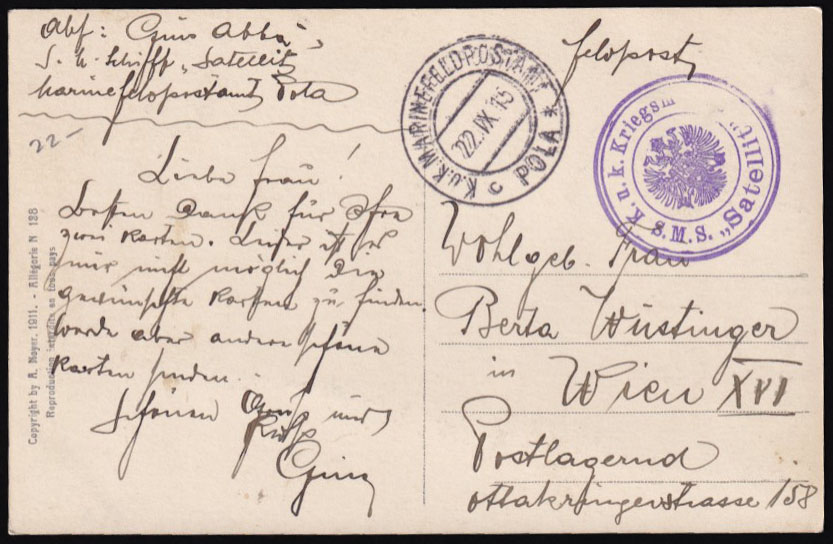 Abs: Gino Abbà
S. M. Schiff „Satellit
Marinefeldpostamt Pola
22-
Feldpost
K.u.K. MARINEFELDPOSTAMT
POLA *
c
22.IX 15
K. u. k. Kriegsm
S.M.S. „Satellit”
Liebe Frau!
Besten Dank für Ihre
zwei Karten. Leider ist es
mir nicht möglich die
gewünschte Karten zu finden.
werde aber andere schöne
Karten senden.
Schönen Gruß und
Kuß
Gino
Wohlgeb. Frau
Berta Wüstinger
in
Wien XVI
Postlagernd
Ottakringerstrasse 158
Copyright by A. Noyer. 1911. - Allégorie N 138
Reproduction interdite en tous pays